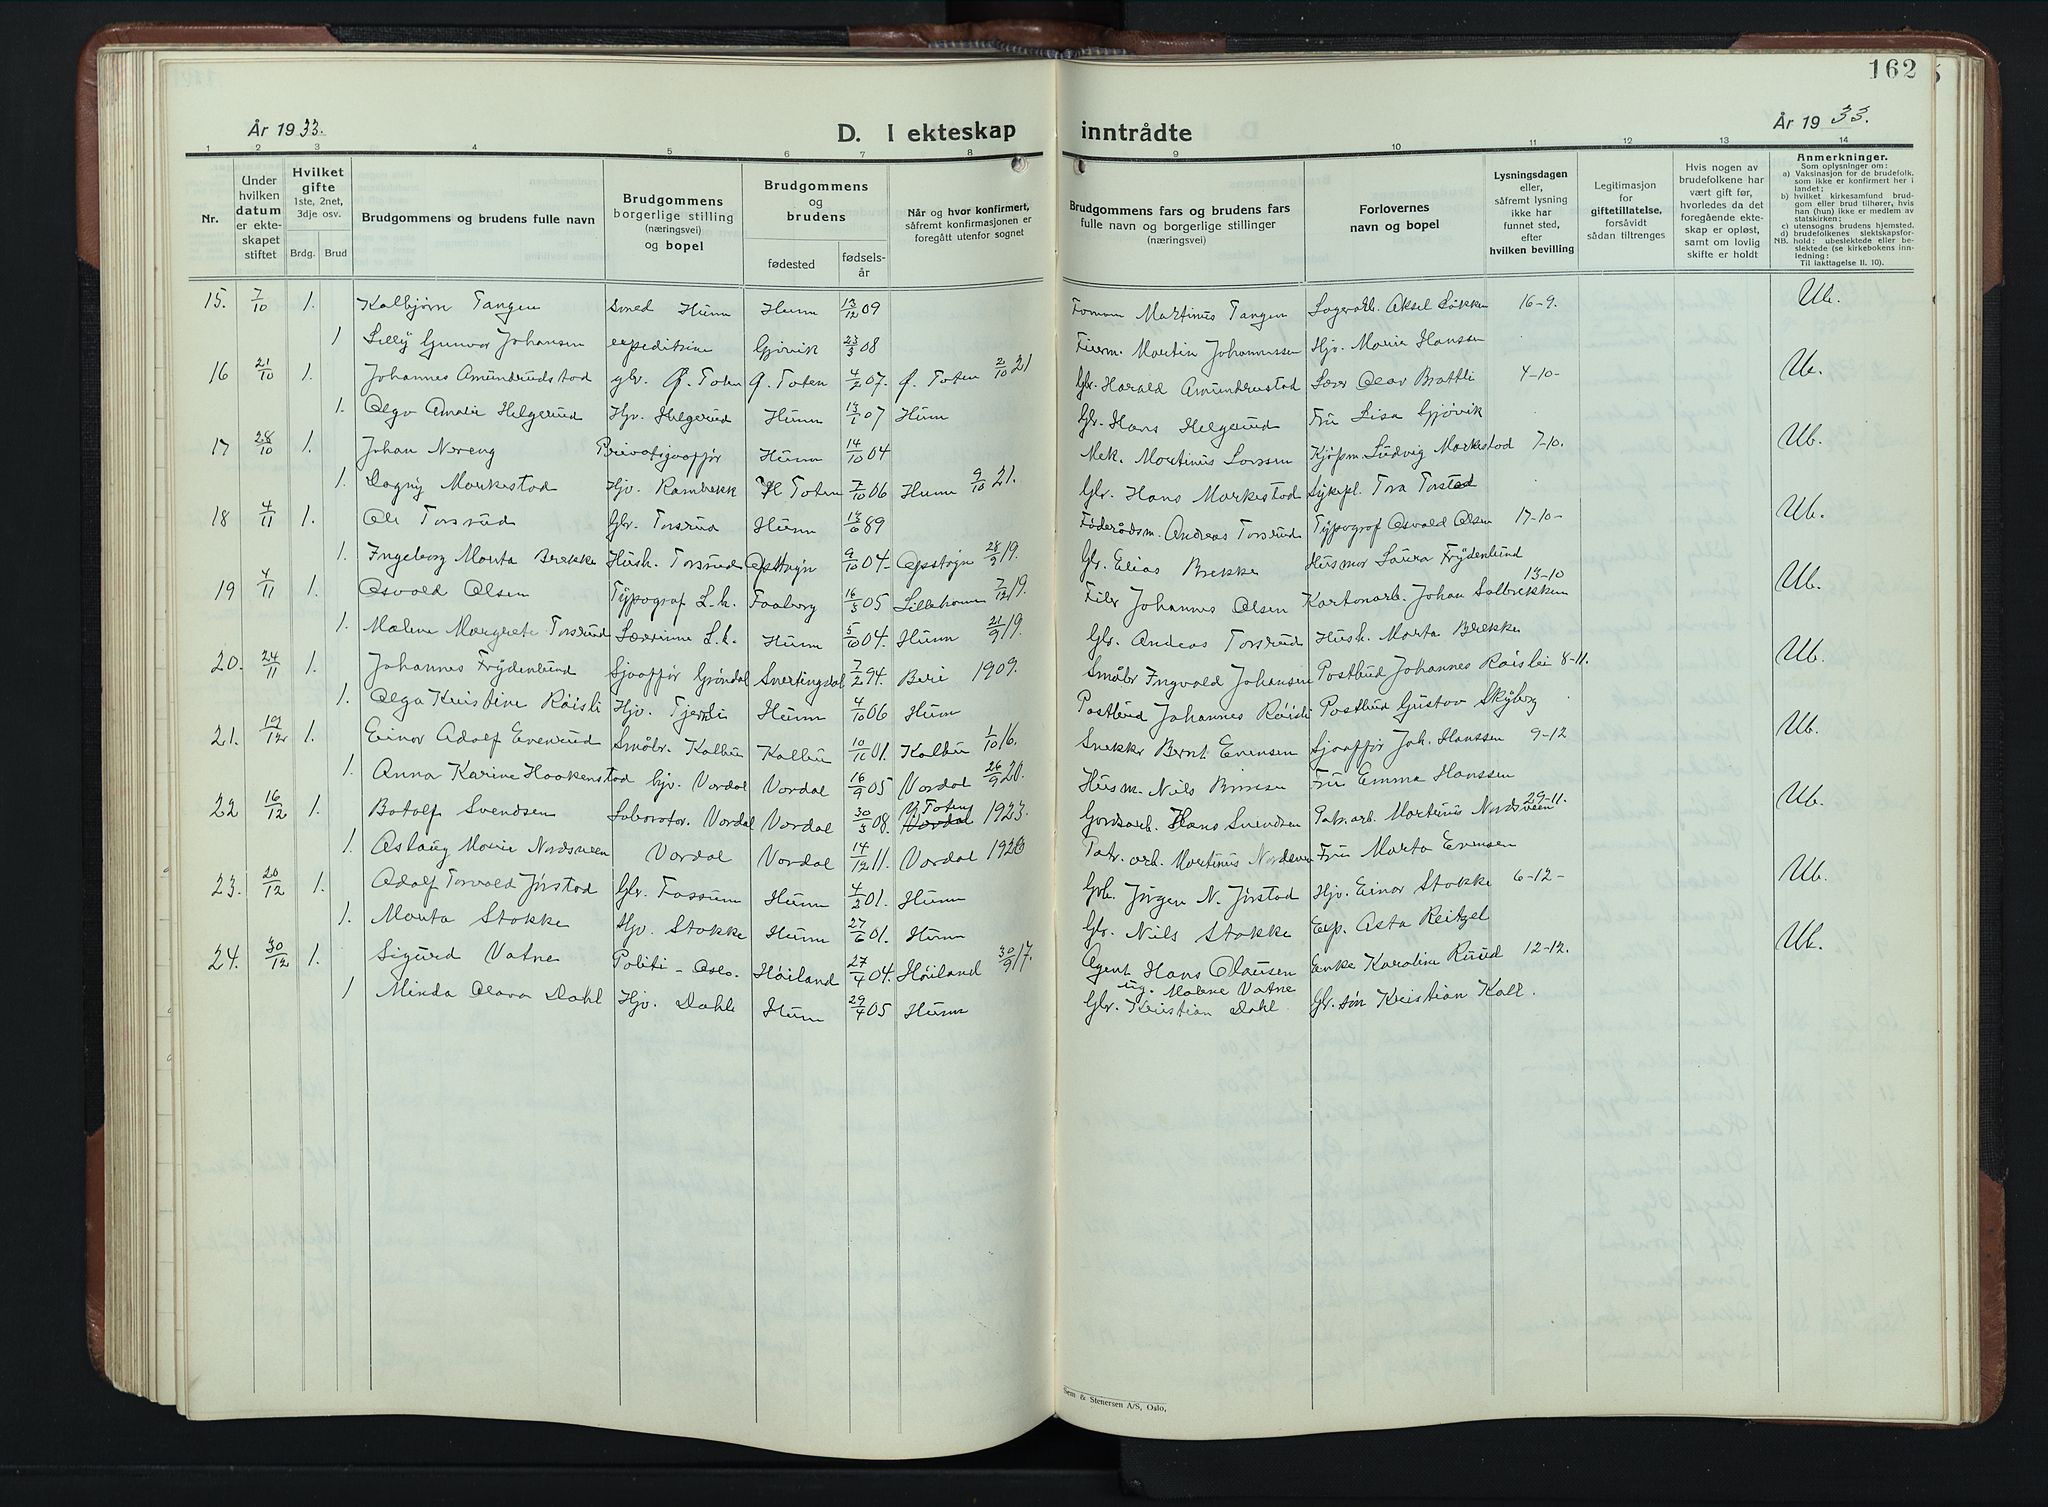 162
År 1933.
D. I ekteskap inntrådte
År 1933.
1 2 3 4 5 6 7 8 9 10 11 12 13 14
Nr.
Under hvilken datum er ekteskapet stiftet
Hvilket gifte 1ste, 2net, 3dje osv.
Brdg. Brud
Brudgommens og brudens fulle navn
Brudgommens borgerlige stilling (næringsvei) og bopel
Brudgommens og brudens
fødested fødselsår
Når og hvor konfirmert, såfremt konfirmasjonen er foregått utenfor sognet
Brudgommens fars og brudens fars fulle navn og borgerlige stillinger (næringsvei)
Forlovernes navn og bopel
Lysningsdagen eller, såfremt lysning ikke har funnet sted, efter hvilken bevilling
Legitimasjon for giftetillatelse, forsåvidt sådan tiltrenges
Hvis nogen av brudefolkene har vært gift før, hvorledes da det foregående ekteskap er opløst, samt om lovlig skifte er holdt
Anmerkninger.
Som oplysninger om:
a) Vaksinasjon for de brudefolk, som ikke er konfirmert her i landet;
b) hvilket kirkesamfund brudgom eller brud tilhører, hvis han (hun) ikke er medlem av statskirken;
c) utensogns brudens hjemsted.
d) brudefolkenes slektskapsforhold: ubeslektede eller beslektede (se kirkebokens innledning:
NB.
Til iakttagelse II. 10).
15. 7/10 1. Kolbjørn Tangen smed Hunn Hunn 13/12 09 Martinus Tangen Aksel Løkken 16-9. Ub.
1 Lilly Gunvor Johansen Gjøvik 23/3 08 Martin Johannessen Hjv. Marie Hansen
16 21/10 1. Johannes Amundrudstad gbr. Ø. Toten Ø. Toten 4/2 07. Ø. Toten 2/10 21 Gbr. Harald Amundrustad Olav Bratlie 4-10- Ub.
1. Olga Amalie Helgerud Hjv. Helgerud Hunn 13/1 07 Hunn Gbr. Hans Helgerud Fru Lisa Gjøvik
17 28/10 1. Johan Nereng Privatsjaafør Hunn 14/10 04 Mek. Martinus Larssen Kjøpm. Ludvig Markestad 7-10. Ub.
1. Dagny Markestad Hjv. Rambekk Toten 7/10 06 Hunn 9/10 21. Gbr. Hans Markestad Sykepl. Tora Torstad
18 4/11 1. Ole Torsrud Gbr. Torsrud Hunn 13/6 89 Føderådsm. Andreas Torsrud Typograf Osvald Olsen 17-10- Ub.
1. Ingeborg Marta Brekke Hush. Torsrud Opstryn 9/10 04 Opstryn 28/9 19. Gbr. Elias Brekke Husmor Laura Frydenlund
19 4/11 1. Osvald Olsen Typograf L.h. Faaberg 16/3 05 Lillehammer 7/12 19. Filer Johannes Olsen Kartonarb. Johan Solbrekken 13-10 Ub.
1. Malene Margrete Torsrud Lærerinne L.h. Hunn 5/10 04. Hunn 21/9 19. Gbr. Andreas Torsrud Hush. Marta Brekke
20. 24/11 1. Johannes Frydenlund Sjaaffør Grøndal Snertingdal 7/2 94. Biri 1909. Småbr Ingvald Johansen Postbud Johannes Røisli 8-11. Ub.
1. Olga Kristine Røisli Hjv. Tjernli Hunn 4/10 06 Hunn Postbud Johannes Røisli Postbud Gustav Skyberg
21. 19/12 1. Einar Adolf Evenrud Småbr. Kolbu Kolbu 10/11 01. Kolbu 1/10 16. Snekker Bernt Evensen Sjaaffør Joh. Hanssen 9-12 Ub.
1. Anna Karine Haakenstad hjv. Vardal Vardal 16/9 05 Vardal 26/9 20. Husm. Nils Fru Emma Hanssen
22 16/12 1. Botolf Svendsen Vardal Vardal 30/3 08. Toten Vardal 1923. Gårdsarb. Hans Svendsen Martinus Nordsveen 29-11. Ub.
1. Aslaug Marie Nordsveen Vardal Vardal 14/12 11. Vardal 1926 arb. Martinus Nordsveen Fru Marta Evensen
23. 20/12 1. Adolf Torvald Jørstad Gbr. Fossum Hunn 4/2 01. Hunn Gbr. Jørgen N. Jørstad Hjv. Einar Stokke 6-12- Ub.
1. Marta Stokke Hjv. Stokke Hunn 27/6 01. Hunn Gbr. Nils Stokke Exp. Asta Reitzel
24. 30/12 1. Sigurd Vatne Politi - Oslo. Høiland 27/4 04. Høiland 30/9 17. Agent Hans Clausen Enke Karoline Ruud 12-12. Ub.
ug. Malene Vatne
1 Minda Olava Dahl Hjv. Dahl Hunn 29/4 05 Hunn Gbr. Kristian Dahl. Gbr. søn Kristian Kalr.
Sem & Stenersen A/S, Oslo.